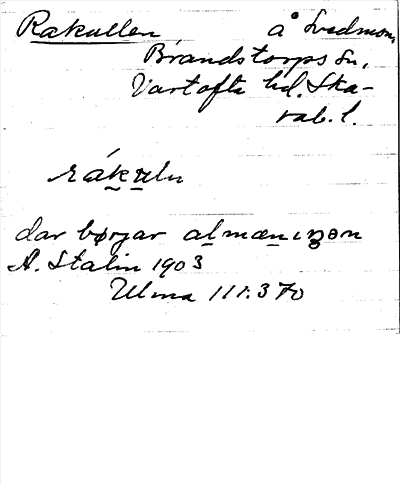 Rakullen å Svedmon,
Brandstorps sn,
Vartofta hd. Ska-
rab. l.
rákuln
dar børjar almænıŋən
A. Stalin 1903
Ulma 111:370